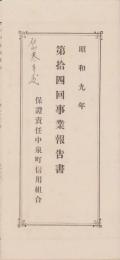 昭和九年
第拾四回事業報告書
保證責任中泉町信用組合